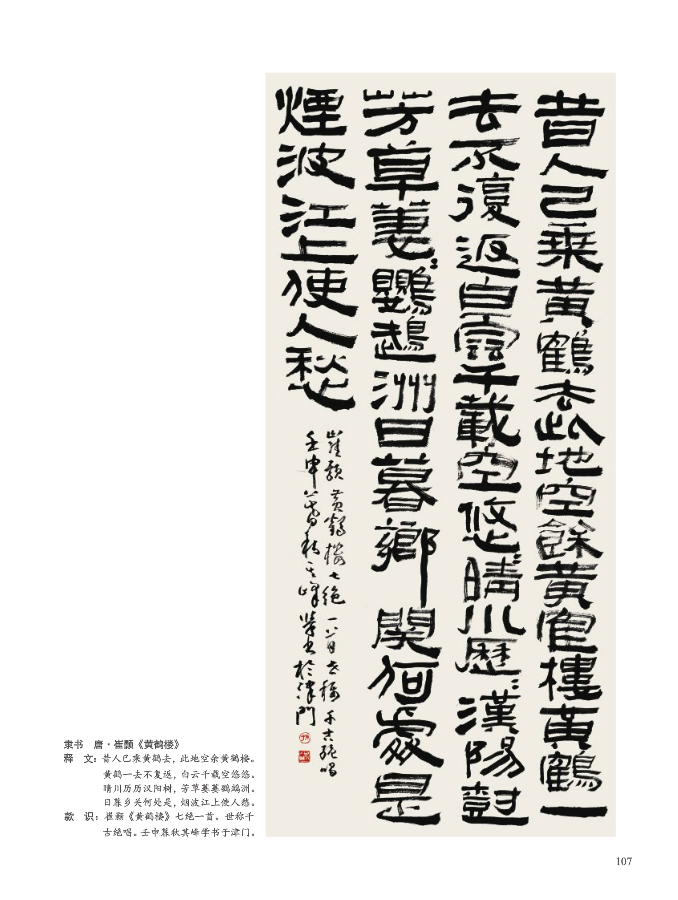 昔人已乘黃鶴去此地空餘黃鶴樓黃鶴一
去不復返白雲千載空悠〻晴川歷〻漢陽樹
芳草萋〻鸚鵡洲日暮鄉關何處是
煙波江上使人愁
崔顥黃鶴樓七絕一首世稱千古絕唱
壬申暮秋其峰學書於津門
隶书 唐·崔颢《黄鹤楼》
释 文：昔人已乘黄鹤去，此地空余黄鹤楼。
黄鹤一去不复返，白云千载空悠悠。
晴川历历汉阳树，芳草萋萋鹦鹉洲。
日暮乡关何处是，烟波江上使人愁。
款 识：崔颢《黄鹤楼》七绝一首。世称千
古绝唱。壬申暮秋其峰学书于津门。
107